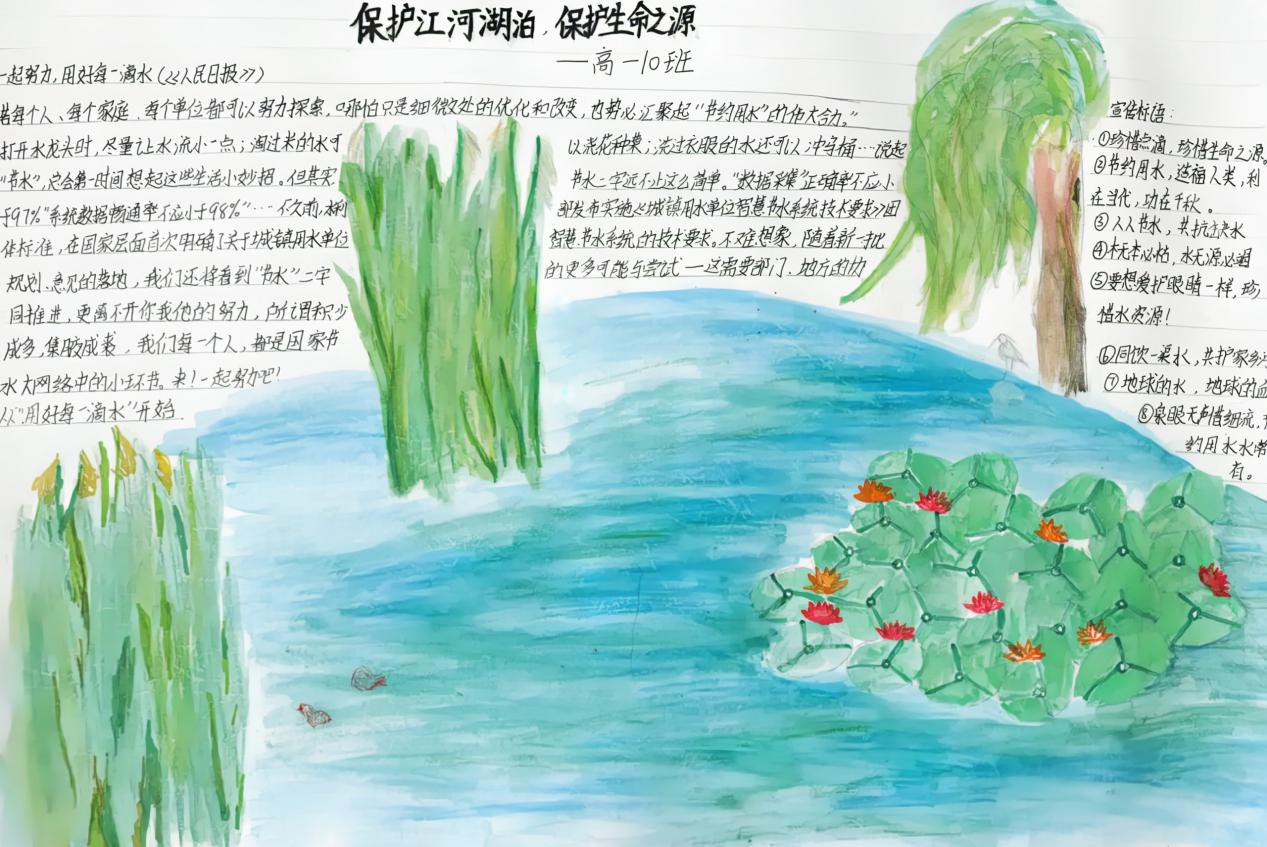 保护江河湖泊，保护生命之源
——高一10班
一起努力，用好每一滴水（《人民日报》）
若每个人、每个家庭、每个单位都可以努力探索，哪怕只是细微处的优化和改变，也势必汇聚起“节约用水”的伟大合力。”
打开水龙头时，尽量让水流小一点；淘过米的水可以浇花种菜；洗过衣服的水还可以冲厕…说起
“节水”，总会第一时间想起这些生活小妙招。但其实节水二字远不止这么简单。“数据采集”正确率不应小
于97%“系统数据畅通率不应小于98%”…不久前，水利部发布实施《城镇用水单位智慧节水系统技术要求》团
体标准，在国家层面首次明确了关于城镇用水单位智慧节水系统的技术要求。不难想象，随着新一批
规划、意见的落地，我们还将看到“节水”二字的更多可能与尝试——这需要部门、地方的协
同推进，更离不开你我他的努力，所谓积少
成多，集腋成裘，我们每一个人，都是国家节
水大网络中的小环节。来！一起努力吧！
从“用好每一滴水”开始
宣传标语：
①珍惜点滴，珍惜生命之源。
②节约用水，造福人类，利
在当代，功在千秋。
③人人节水，共抗
④木无本必枯，水无源必竭
⑤要想爱护眼睛一样，珍
惜水资源！
⑥同饮一渠水，共护家乡
⑦地球的水，地球的血
⑧泉眼无声惜细流，节
约用水水常
有。